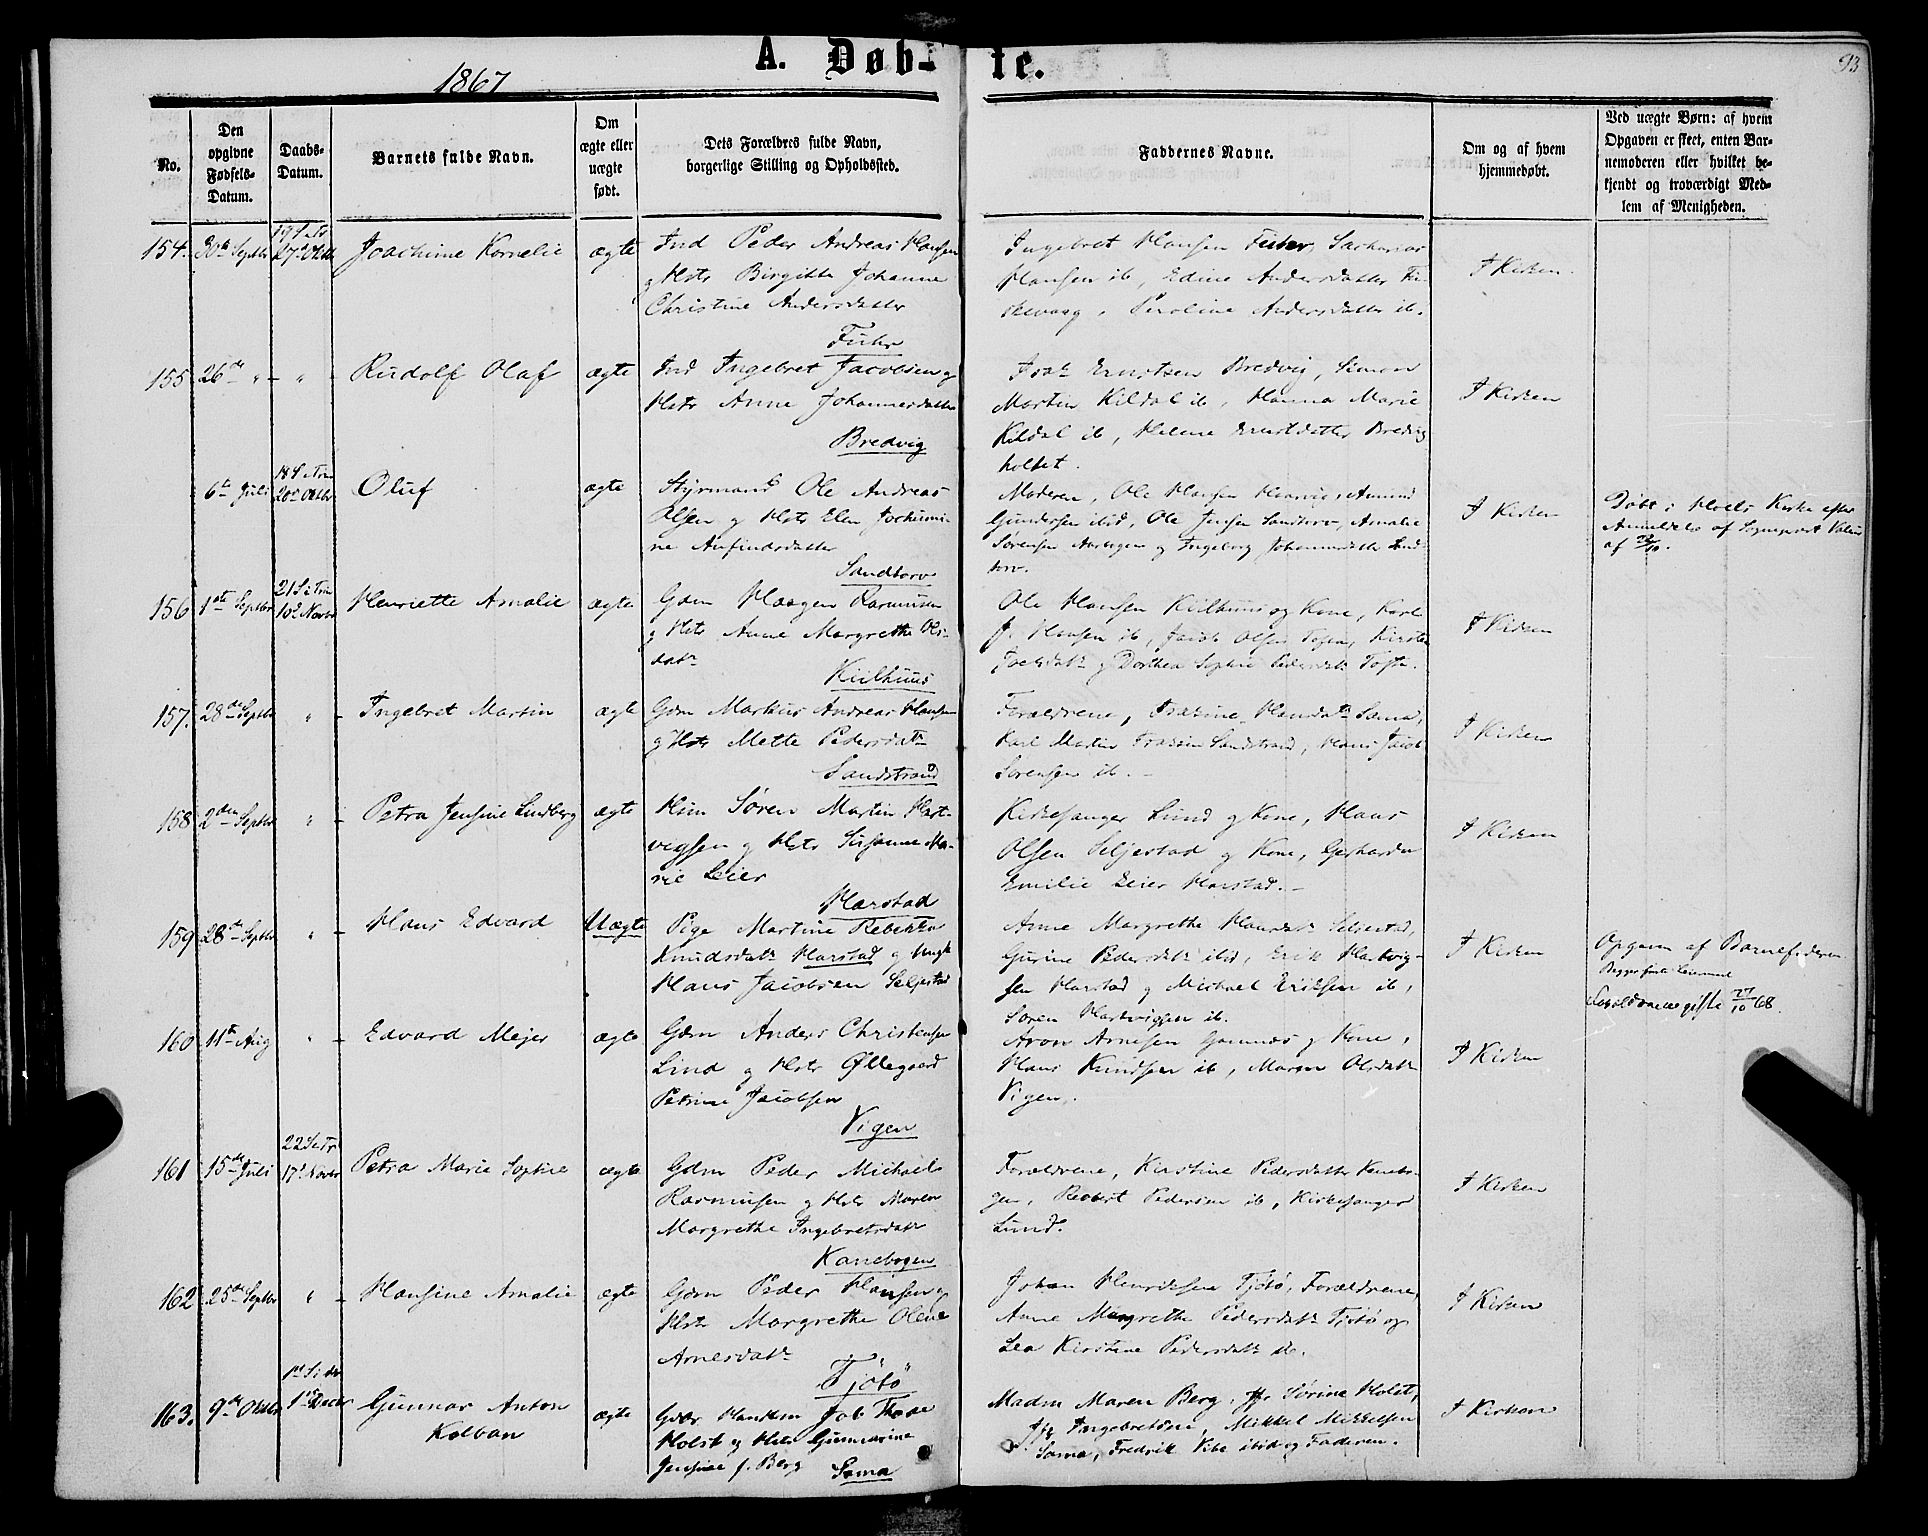 A. Døb-
te.
93
1867
No.
Den
opgivne
Fødsels-
Datum.
Daabs-
Datum.
Barnets fulde Navn.
Om
ægte eller
uægte
født.
Dets Forældres fulde Navn,
borgerlige Stilling og Opholdssted.
Faddernes Navne.
Om og af hvem
hjemmedøbt.
Ved uægte Børn: af hvem
Opgaven er skeet, enten Bar-
nemoderen eller hvilket be-
kjendt og troværdigt Med-
lem af Menigheden.
154. 30te Septbr 27de Oktbr
Joachime Kornelie
ægte
Ind Peder Andreas Hansen
og Hstr Birgitte Johanne
Christine Andersdatter
Fuhr
Ingebret Hansen
Hansen ib, Edine Andersdatter
Andersdatter ib.
I Kirken
155 26de " - " -
Rudolf Olaf
ægte
Ind Ingebret Jacobsen og
Hstr Anne Johannesdatter
Bredvig
Erntsen Bredvig, Simon
Martin Kildal ib, Hanna Marie
Kildal ib, Helene
holtet.
I Kirken
6te Juli
20de Oktbr
Oluf
ægte
Styrmand Ole Andreas
Olsen og Hstr Elen Jochumi-
ne Anfindsdatter
Sandtorv
Moderen, Ole Hansen
Gundersen ibid, Ole Jensen Sandtorv, Amalie
Sørensen og Ingeborg Johannesdatter Sand-
torv.
I Kirken
Døbt i Kirke efter
Anmeldelse af Sogneprest
af
156 1ste Septbr
21 S. e Trin
10de Novbr
Henriette Amalie
ægte
Gdm Haagen Rasmusen
og Hstr Anne Margrethe Ols-
datr
Kiilhuus
Ole Hansen Kiilhuus og Kone, Karl
J. Hansen ib, Jacob Olsen
og Dorthea Sophie Pedersdtr
I Kirken
157. 28de Septbr " -
Ingebret Martin
ægte
Gdm Markus Andreas Hansen
og Hstr Mette Pedersdatr
Sandstrand
Forældrene, Hansdatr Sama,
Karl Martin Sandstrand, Hans Jacob
Sørensen ib. -
I Kirken
158 2den Septbr " -
Petra Jensine Lindberg
ægte
Huus Søren Martin Hart-
vigsen og Hstr Susanne Ma-
rie Leier
Harstad
Kirkesanger Lund og Kone, Hans
Olsen Seljestad og Kone, Gerharda
Emilie Leier Harstad. -
I Kirken
159 28de Septbr " -
Hans Edvard
Uægte
Pige Martine Rebekka
Knudsdatr Harstad og Ungk
Hans Jacobsen Seljestad
Anne Margrethe Hansdatr Seljestad,
Gurine Pedersdatr ibid, Erik Hartvig-
sen Harstad og Michael Eriksen ib,
Søren Hartvigsen ib.
I Kirken
Opgaven af Barnefaderen
Begges første Leiermaal
Forældrene gifte 27/10 68.
160 11te Aug " -
Edvard Mejer
ægte
Gdm Anders Christensen
Lind og Hstr Øllegaard
Petrine Jacobsen
Vigen
Aron Arnesen og Kone,
Hans Knudsen ib, Maren Olsdatr
Vigen.
I Kirken
161 15de Juli
22 S. e Tr
17de Novbr
Petra Marie Sophie
ægte
Gdm Peder Michaels
Rasmusen og Hstr Maren
Margrethe Ingebretsdatr
Kanebogen
Forældrene, Kirstine Pedersdatter Kanebo-
gen, Robert Pedersen ib, Kirkesanger
Lund.
I Kirken
162 25de Septbr " -
Hansine Amalie
ægte
Gdm Peder Hansen og
Hstr Margrethe Olene
Arnesdatr
Tjötö
Johan Henriksen Tjötö, Forældrene,
Anne Margrethe Pedersdatr Tjötö og
Lea Kirstine Pedersdatr ib.
I Kirken
163. 9de Oktbr
1ste Decbr
Gunnar Anton
Kolban
ægte
Job Thode
Holst og Hstr Gunnarine
Jensine f. Berg
Sama
Madm Maren Berg, Jfr Sørine Holst,
Jfr Ingebretsen, Mikkel Mikkelsen
Sama, Fredrik Vibe ibid og Faderen.
I Kirken